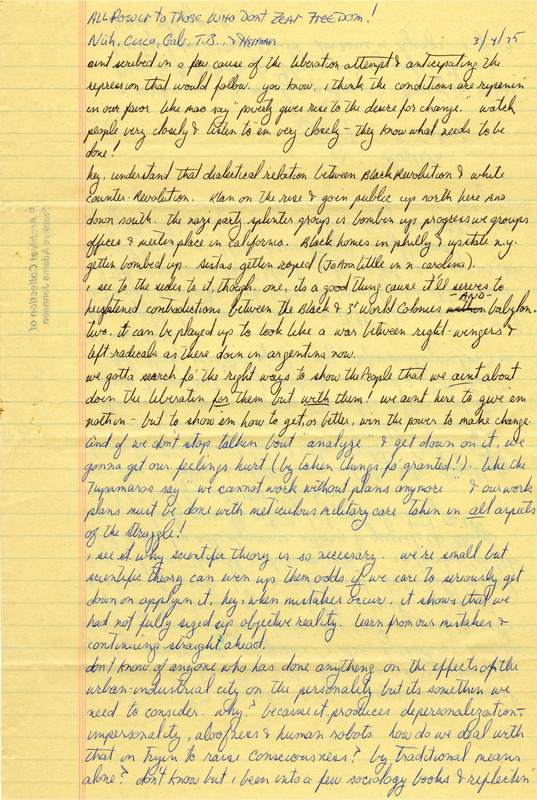 ALL POWER TO THOSE WHO DON'T FEAR FREEDOM!
Nuh, Cisco, Gabe, T.B., & HERMAN 3/4/75
aint scribed in a few cause of the liberation attempt & anticipating the
repression that would follow. you know, i think the conditions are ripenin'
in our favor. like mao say "poverty gives rise to the desire for change." watch
people very closely & listen to em very closely - they know what needs to be
done!
hey, understand that dialectical relation between Black Revolution & white
counter-Revolution. Klan on the rise & goin public up north here AND
down south. the nazi party splinter groups is bombin up progressive groups
offices & meetin place in California. Black homes in philly & upstate n.y.
gettin bombed up. Sistas gettin raped (JoAnn little in n. carolina).
i see to the sides to it, though. one, its a good thing cause it'll serves to
heightened contradictions between the Black & 3rd World Colonies AND babylon.
two. it can be played up to look like a war between right-wingers &
left radicals as there down in argentina now.
we gotta search fo' the right ways to show the People that we aint about
doin the liberatin for them but with them! we aint here to give em
nothin - but to show em how to get, or better, win the power to make change.
And if we don't stop talkin bout "analyze" & get down on it, we
gonna get our feelings hurt (by taken things fo granted!). like the
Tupamaros say "we cannot work without plans anymore" & our work
plans must be done with meticulous military care taken in all aspects
of the struggle!
i see why scientific theory is so necessary. we're small but
scientific theory can even up them odds if we care to seriously get
down on applyin it. hey, when mistakes occur, it shows that we
had not fully sized up objective reality. learn from our mistakes &
continuing straight ahead.
don't know of anyone who has done anything on the effects of the
urban-industrial city on the personality but its somethin we
need to consider. why? because it produces depersonalization,
impersonality, aloofness & human robots. how do we deal with
that in tryin to raise consciousness? by traditional means
alone? don't know but i been into a few sociology books & reflectin'